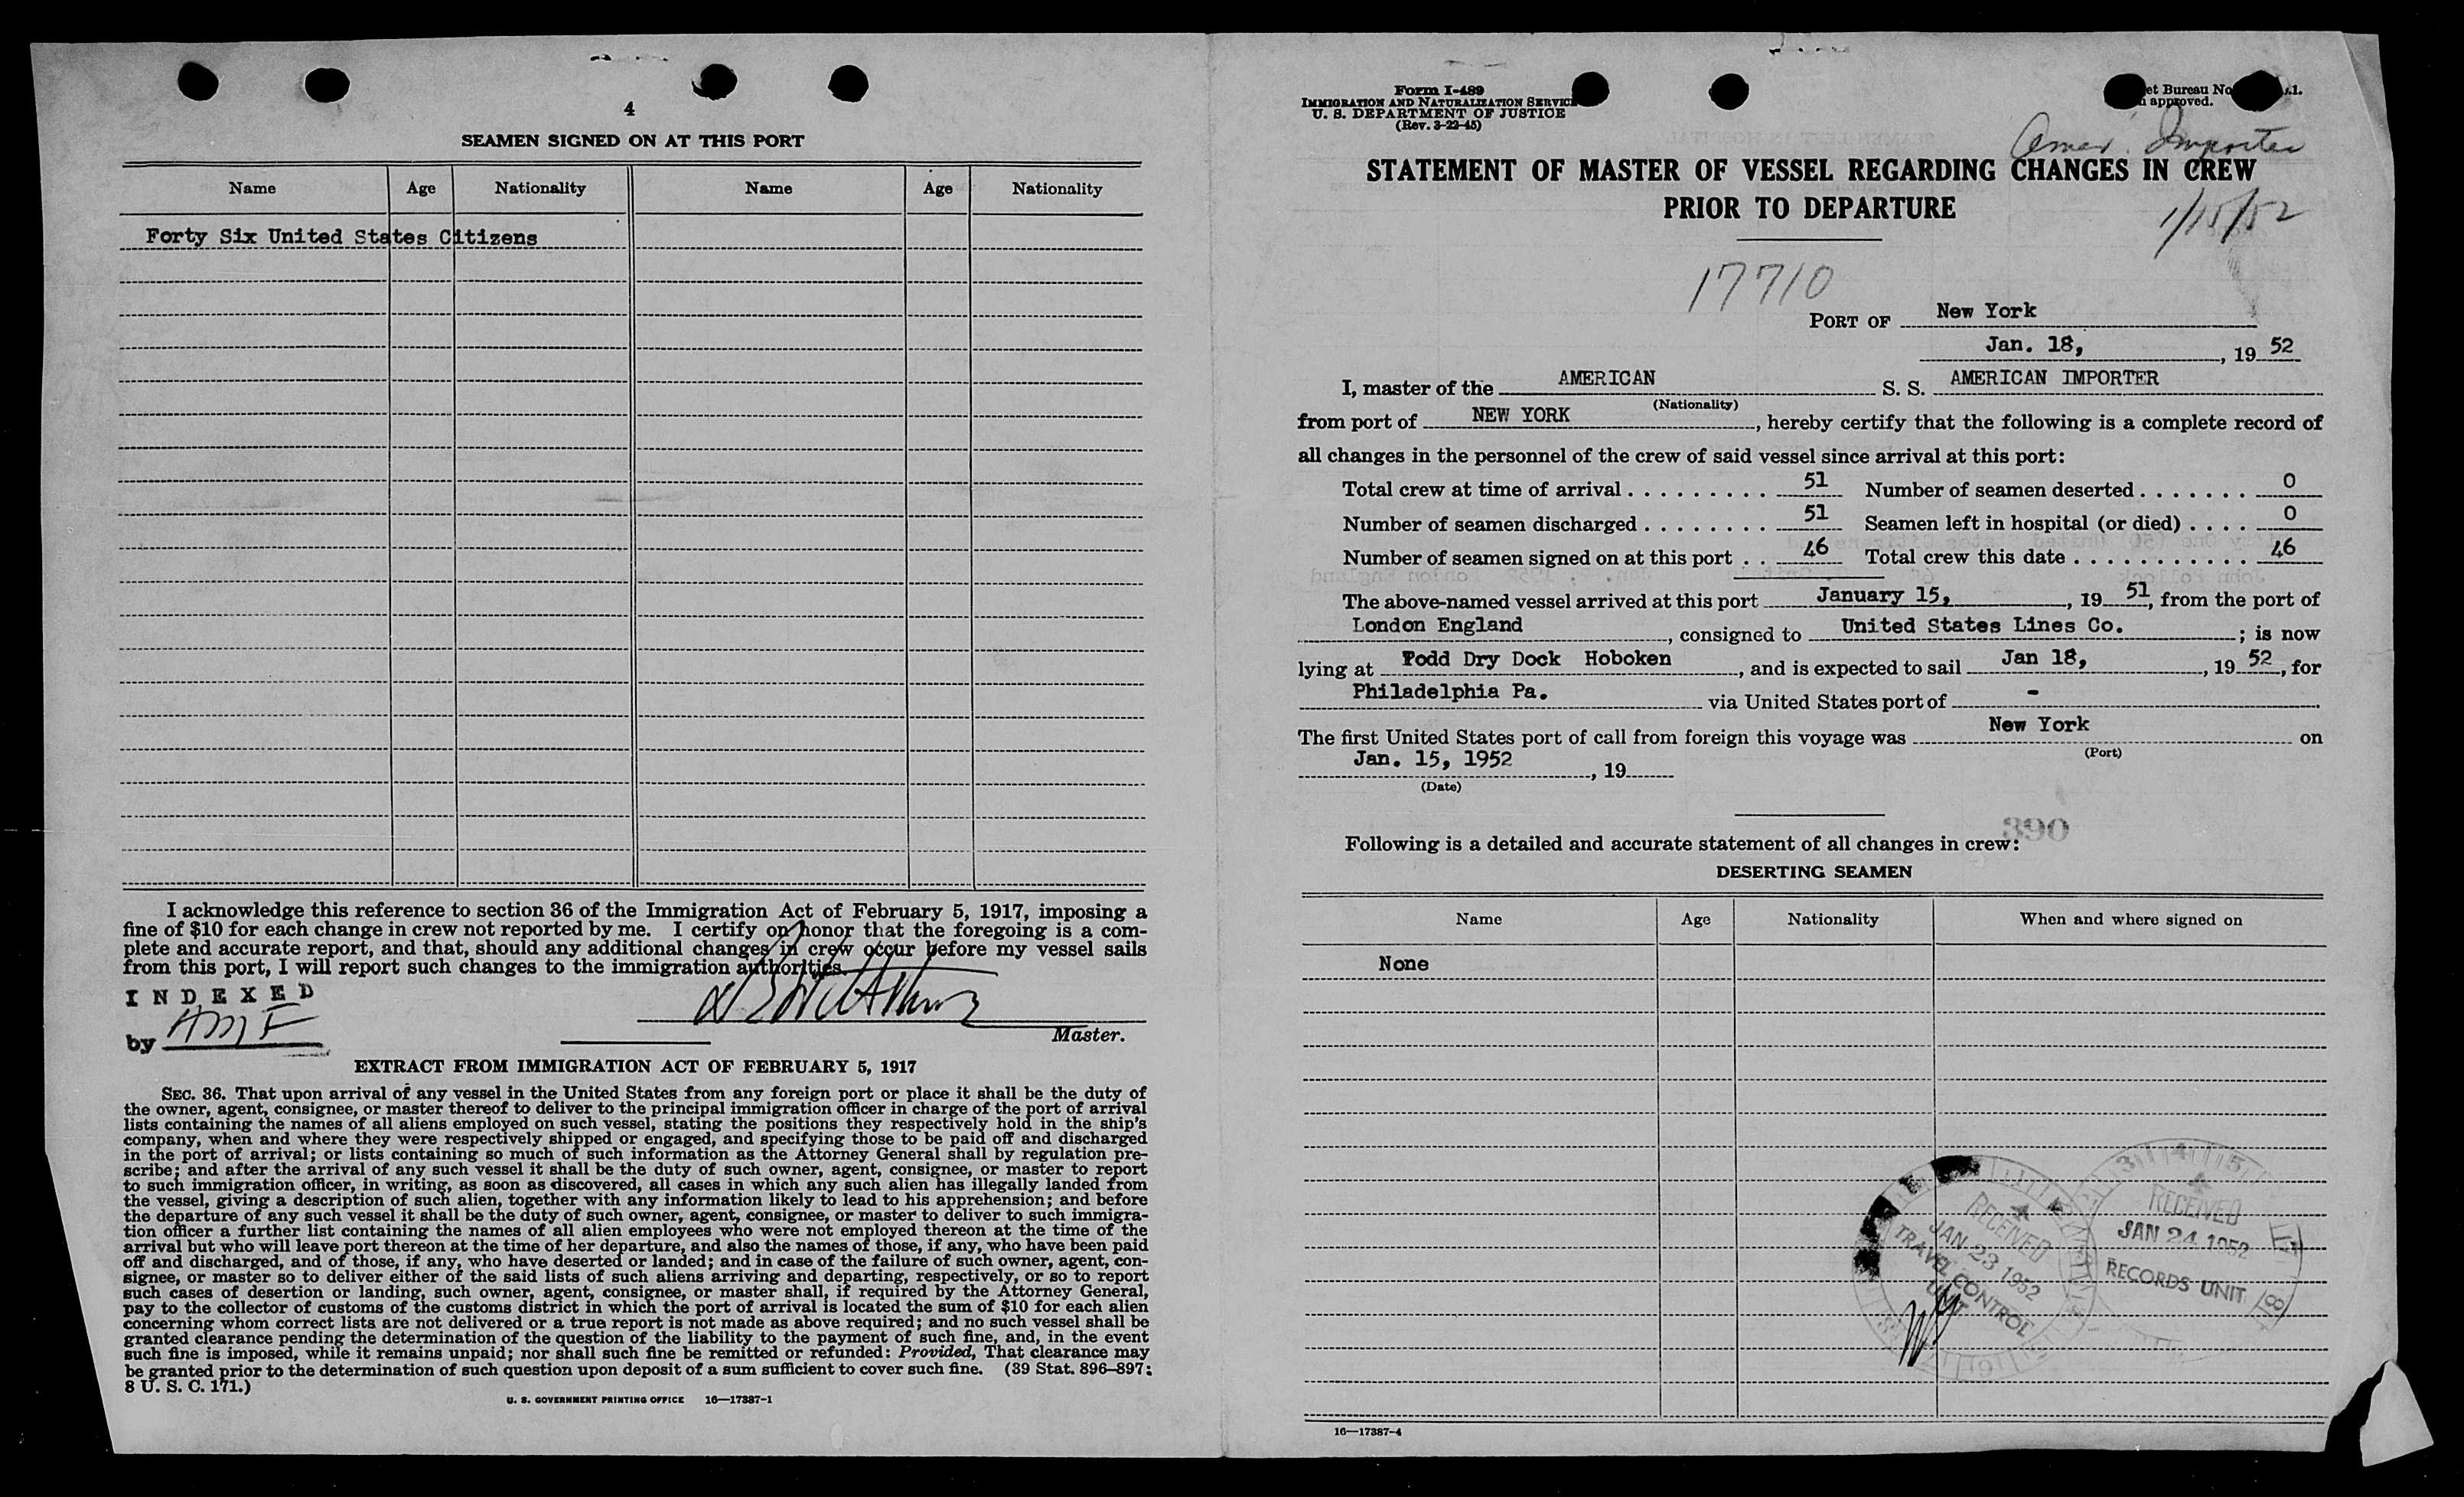 4
SEAMEN SIGNED ON AT THIS PORT
Name Age Nationality Name Age Nationality
Forty Six United States Citizens
I acknowledge this reference to section 36 of the Immigration Act of February 5, 1917, imposing a
fine of $10 for each change in crew not reported by me. I certify on honor that the foregoing is a com-
plete and accurate report, and that, should any additional changes in crew occur before my vessel sails
from this port, I will report such changes to the immigration authorities.
INDEXED
by AMF
Master.
EXTRACT FROM IMMIGRATION ACT OF FEBRUARY 5, 1917
SEC. 36. That upon arrival of any vessel in the United States from any foreign port or place it shall be the duty of
the owner, agent, consignee, or master thereof to deliver to the principal immigration officer in charge of the port of arrival
lists containing the names of all aliens employed on such vessel, stating the positions they respectively hold in the ship's
company, when and where they were respectively shipped or engaged, and specifying those to be paid off and discharged
in the port of arrival; or lists containing so much of such information as the Attorney General shall by regulation pre-
scribe; and after the arrival of any such vessel it shall be the duty of such owner, agent, consignee, or master to report
to such immigration officer, in writing, as soon as discovered, all cases in which any such alien has illegally landed from
the vessel, giving a description of such alien, together with any information likely to lead to his apprehension; and before
the departure of any such vessel it shall be the duty of such owner, agent, consignee, or master to deliver to such immigra-
tion officer a further list containing the names of all alien employees who were not employed thereon at the time of the
arrival but who will leave port thereon at the time of her departure, and also the names of those, if any, who have been paid
off and discharged, and of those, if any, who have deserted or landed; and in case of the failure of such owner, agent, con-
signee, or master so to deliver either of the said lists of such aliens arriving and departing, respectively, or so to report
such cases of desertion or landing, such owner, agent, consignee, or master shall, if required by the Attorney General,
pay to the collector of customs of the customs district in which the port of arrival is located the sum of $10 for each alien
concerning whom correct lists are not delivered or a true report is not made as above required; and no such vessel shall be
granted clearance pending the determination of the question of the liability to the payment of such fine, and, in the event
such fine is imposed, while it remains unpaid; nor shall such fine be remitted or refunded: Provided, That clearance may
be granted prior to the determination of such question upon deposit of a sum sufficient to cover such fine. (39 Stat. 896–897;
8 U. S. C. 171.)
U. S. GOVERNMENT PRINTING OFFICE 16—17387-1
Form I-489
IMMIGRATION AND NATURALIZATION SERVICE
U. S. DEPARTMENT OF JUSTICE
(Rev. 3-22-45)
et Bureau No .1.
approved.
Amer. Importer
STATEMENT OF MASTER OF VESSEL REGARDING CHANGES IN CREW
PRIOR TO DEPARTURE
1/15/52
17710
PORT OF New York
Jan. 18, , 19 52
I, master of the AMERICAN S. S. AMERICAN IMPORTER
(Nationality)
from port of NEW YORK , hereby certify that the following is a complete record of
all changes in the personnel of the crew of said vessel since arrival at this port:
Total crew at time of arrival . . . . . . . . . 51 Number of seamen deserted . . . . . . . 0
Number of seamen discharged . . . . . . . . 51 Seamen left in hospital (or died) . . . . 0
Number of seamen signed on at this port . . 46 Total crew this date . . . . . . . . . . . 46
The above-named vessel arrived at this port January 15, , 19 51, from the port of
London England , consigned to United States Lines Co. ; is now
lying at Todd Dry Dock Hoboken , and is expected to sail Jan 18, , 19 52, for
Philadelphia Pa. via United States port of - .
The first United States port of call from foreign this voyage was New York on
(Port)
Jan. 15, 1952 , 19
(Date)
390
Following is a detailed and accurate statement of all changes in crew:
DESERTING SEAMEN
Name Age Nationality When and where signed on
None
RECEIVED
JAN 23 1952
TRAVEL CONTROL
UNIT
RECEIVED
JAN 24 1952
RECORDS UNIT
16—17387-4